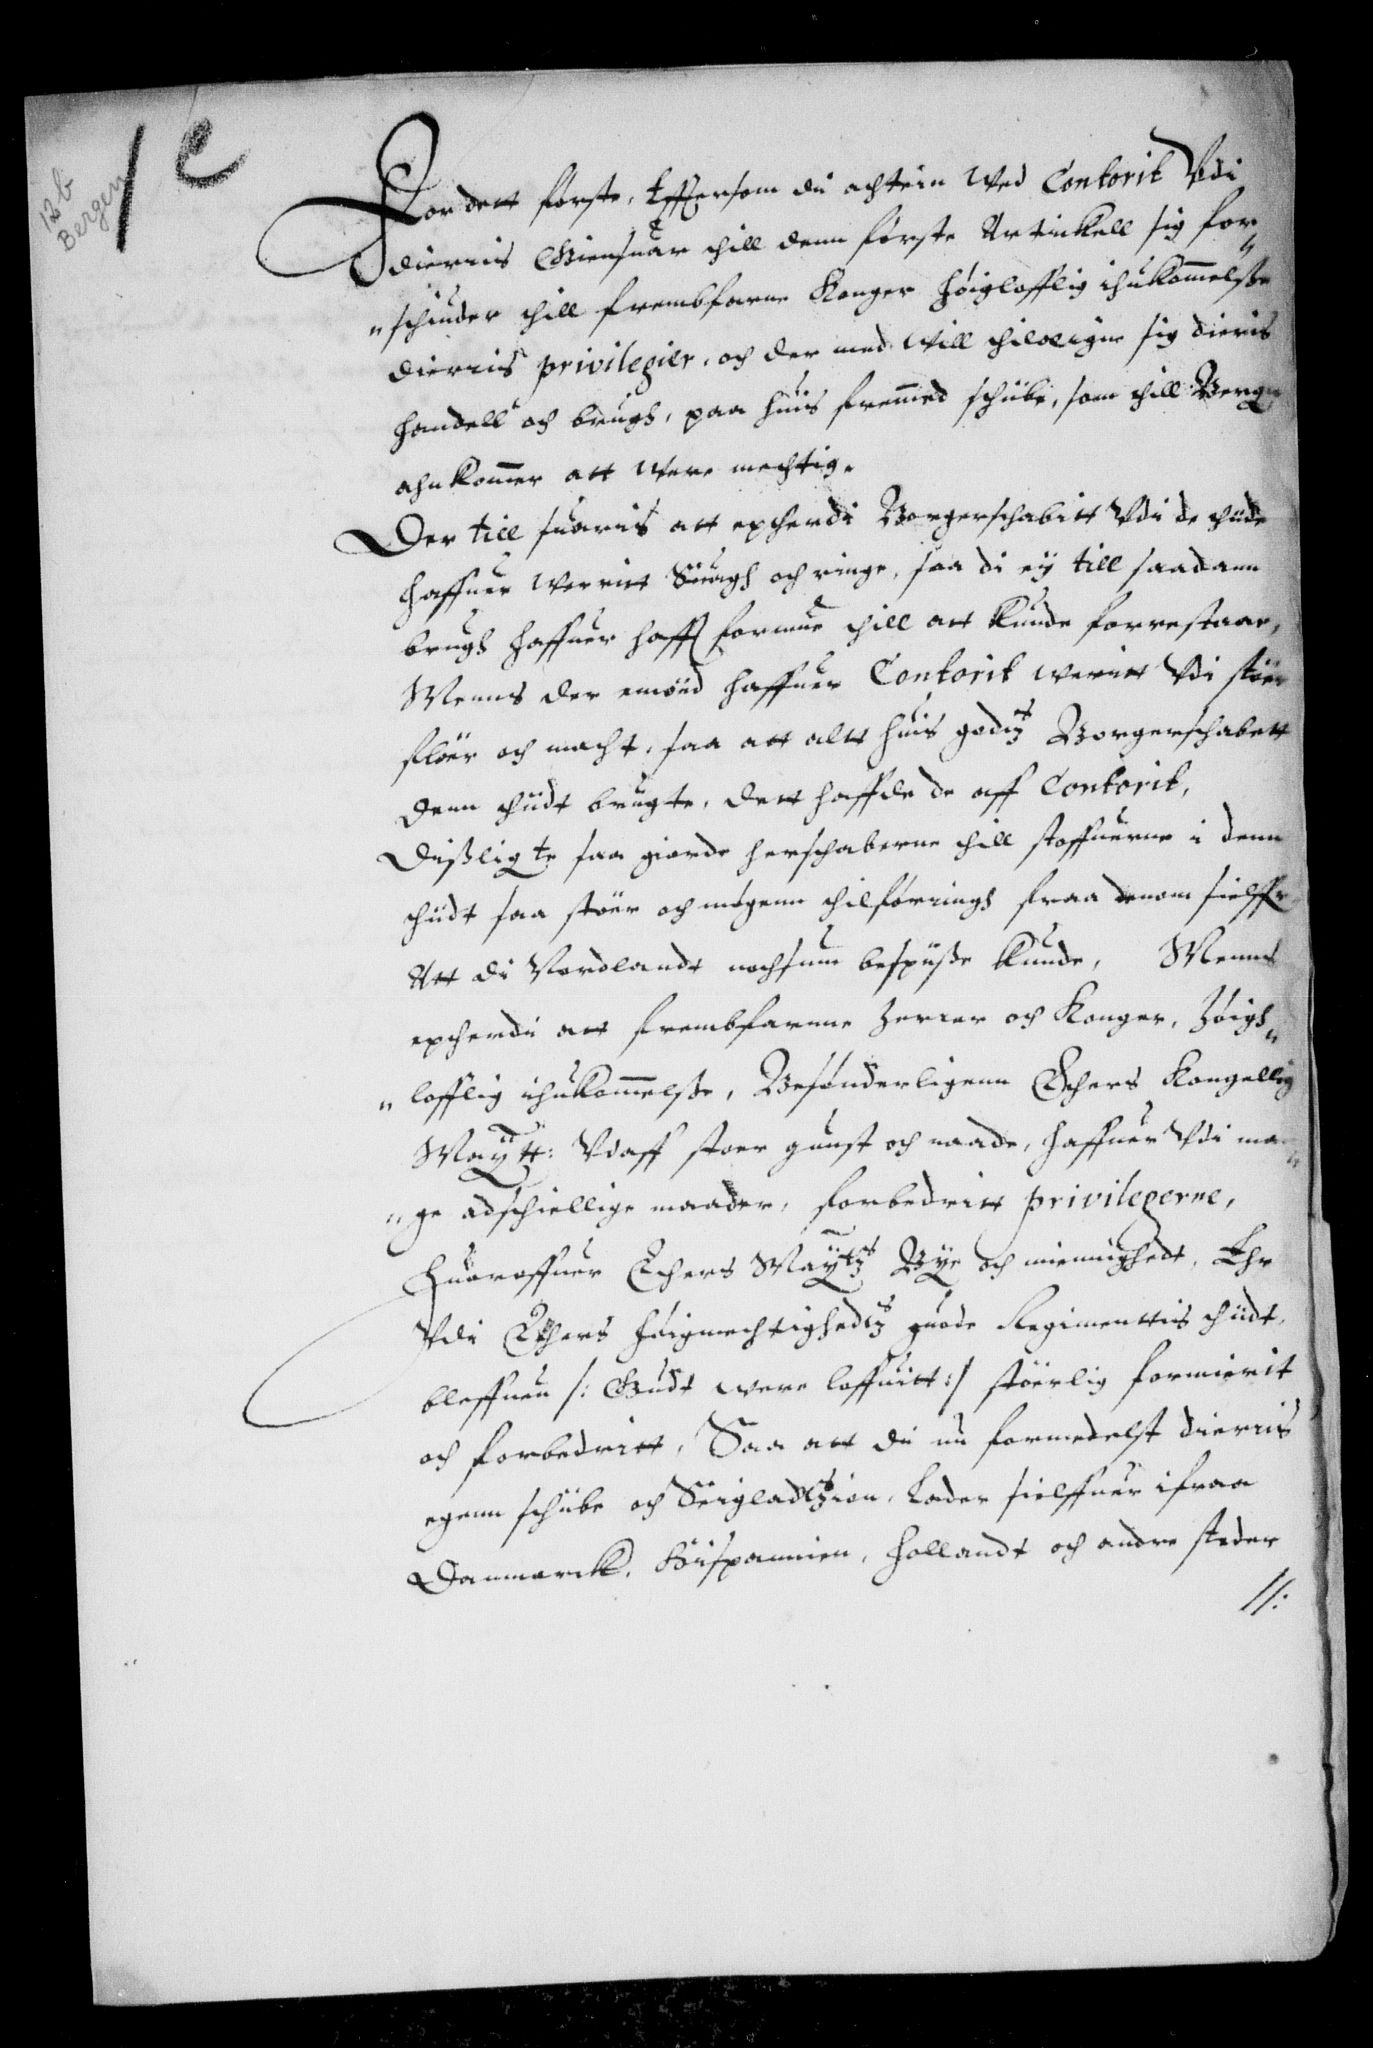 12b
Bergen
1 e
For dett første, Effersom di achtein wed Contorit Vdi
dierris Giensuar thill denn første Artickell sig for
schiuder thill frembfarne Konger høiglofflig ihukommelsse
dierris privilegier, och der med will thileigne sig dieris
handell och brugh, paa huis fremmed schibe, som thill Bergn
ahnkommer att were mechtig.
Der till suaris att eptherdi Borgerschabitt Vdi de thide
haffuer werritt Suagh och ringe, saa di ey till saadann
brugh haffuer hafft formue thill att kunde forrestaae,
Menns der emod haffuer Contorit weritt Vdi stoer
floer och macht, saa att altt huis godtz Borgerschabett
denn thidt brugte, dett haffde de aff Contorit,
Dissligste saa giorde herschaberne thill stoffuerne i denn
thidt saa stoer och megenn thilførringh fraa denom sielffr
Att di Nordlandt nochsum bespisse kunde, Menns
eptherdi att frembfarnne herrer och Konger, høigh
lofflig ihukommelsse, Besønderligenn Ethers Kongellig
Maytt: Vdaff stoer gunst och naade, haffuer Vdi man
ge adschiellige maader, forbedritt privilegerne,
Huoroffuer Ethers Maytz Bye och menighedt, Ehr
Vdi Ethers høigmechtighedtz guode Regimenttis thidt,
bleffuen /: Gudt were loffuitt :/ stoerlig formierit
och forbedritt, Saa att di nu formedelst dierris
egenn schibe och Seigladtzion, Lader sielffuer ifraa
Danmarck, Hispannien, Hollandt och andre steder
//: